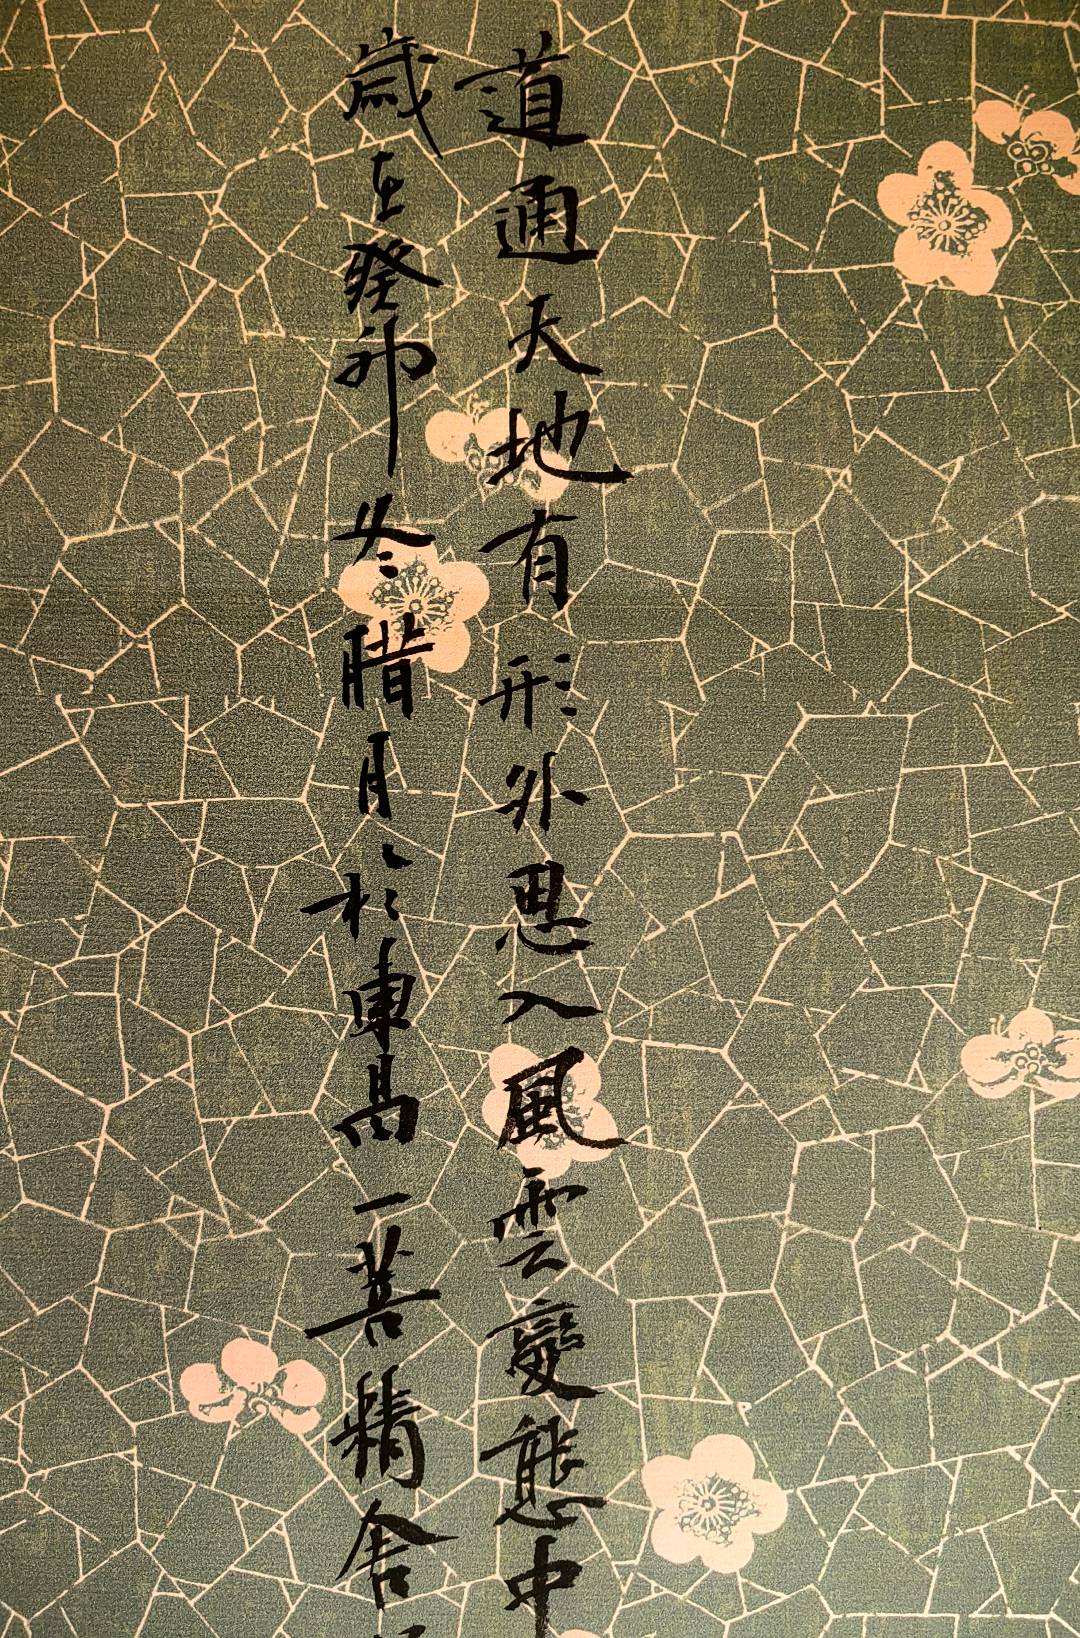 道通天地有形外思入風雲變態中
歲在癸卯冬腊月於東昌一善精舍